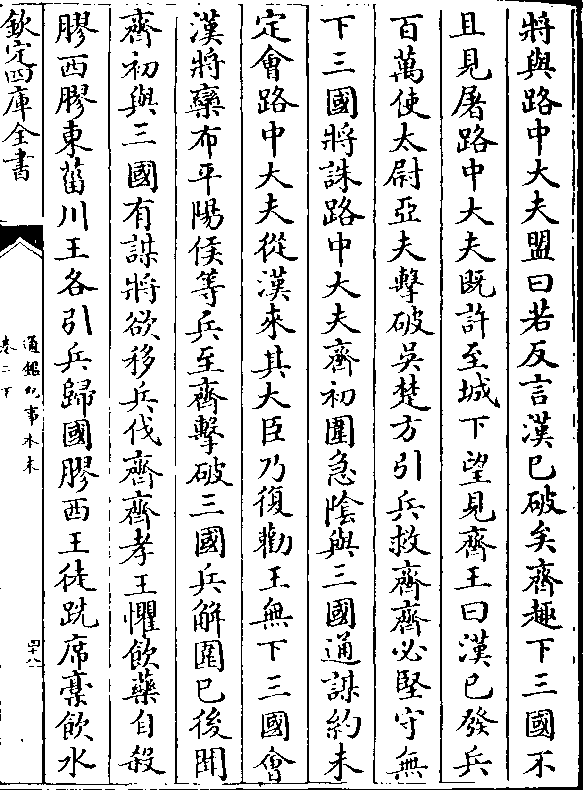 將與路中大夫盟曰若反言漢已破矣齊趣下三國不
且見屠路中大夫既許至城下望見齊王曰漢已發兵
百萬使太尉亞夫擊破吳楚方引兵救齊齊必堅守無
下三國將誅路中大夫齊初圍急陰與三國通謀約未
定會路中大夫從漢來其大臣乃復勸王無下三國會
漢將欒布平陽侯等兵至齊擊破三國兵解圍已後聞
齊初與三國有謀將欲移兵伐齊齊孝王懼飲藥自殺
膠西膠東菑川王各引兵歸國膠西王徒跣席稾飲水
欽定四庫全書
通鑑紀事本末
卷二下
四十八